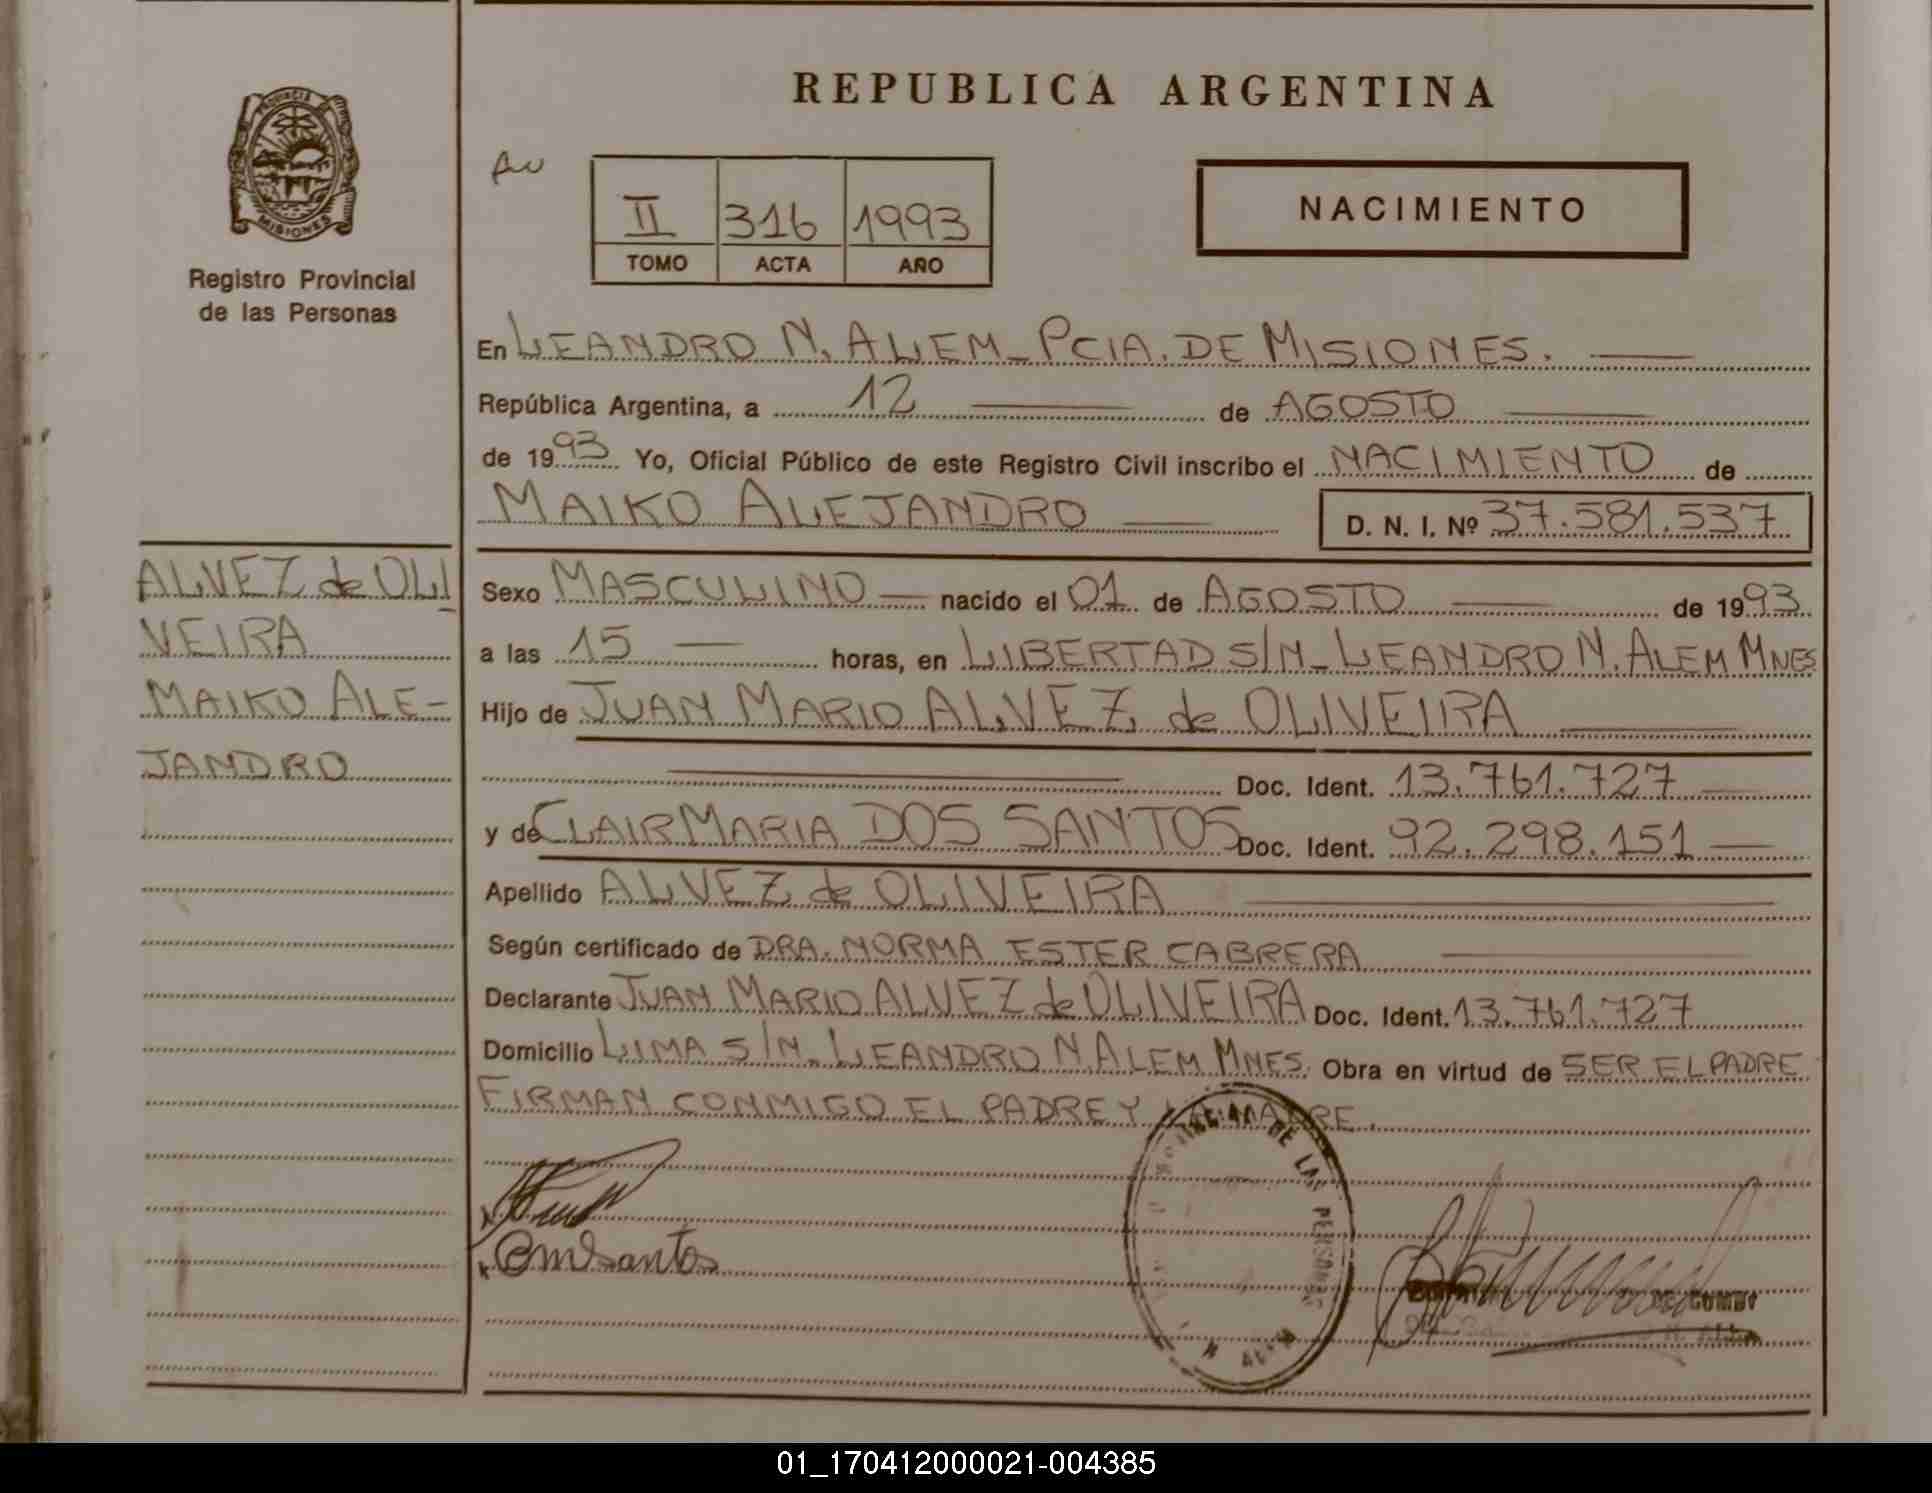 REPUBLICA ARGENTINA
PROVINCIA DE
MISIONES
Registro Provincial
de las Personas
II 316 1993
TOMO ACTA AÑO
NACIMIENTO
En LEANDRO N. ALEM_ PCIA. DE MISIONES.
República Argentina, a 12 de AGOSTO
de 1993 Yo, Oficial Público de este Registro Civil inscribo el NACIMIENTO de
MAIKO ALEJANDRO D. N. I. Nº 37.581.537
ALVEZ de OLI
VEIRA
MAIKO ALE-
JANDRO
Sexo MASCULINO nacido el 01 de AGOSTO de 1993
a las 15 horas, en LIBERTAD S/N_ LEANDRO N. ALEM MNES
Hijo de JUAN MARIO ALVEZ de OLIVEIRA
Doc. Ident. 13.761.727
y de CLAIR MARIA DOS SANTOS Doc. Ident. 92.298.151
Apellido ALVEZ de OLIVEIRA
Según certificado de DRA. NORMA ESTER CABRERA
Declarante JUAN MARIO ALVEZ de OLIVEIRA Doc. Ident. 13.761.727
Domicilio LIMA S/N_ LEANDRO N ALEM MNES. Obra en virtud de SER EL PADRE
FIRMAN CONMIGO EL PADRE Y LA MADRE.
DE LAS PERSONAS
N. ALEM
CmSantos
DE GOMEZ
N. ALEM
01_170412000021-004385